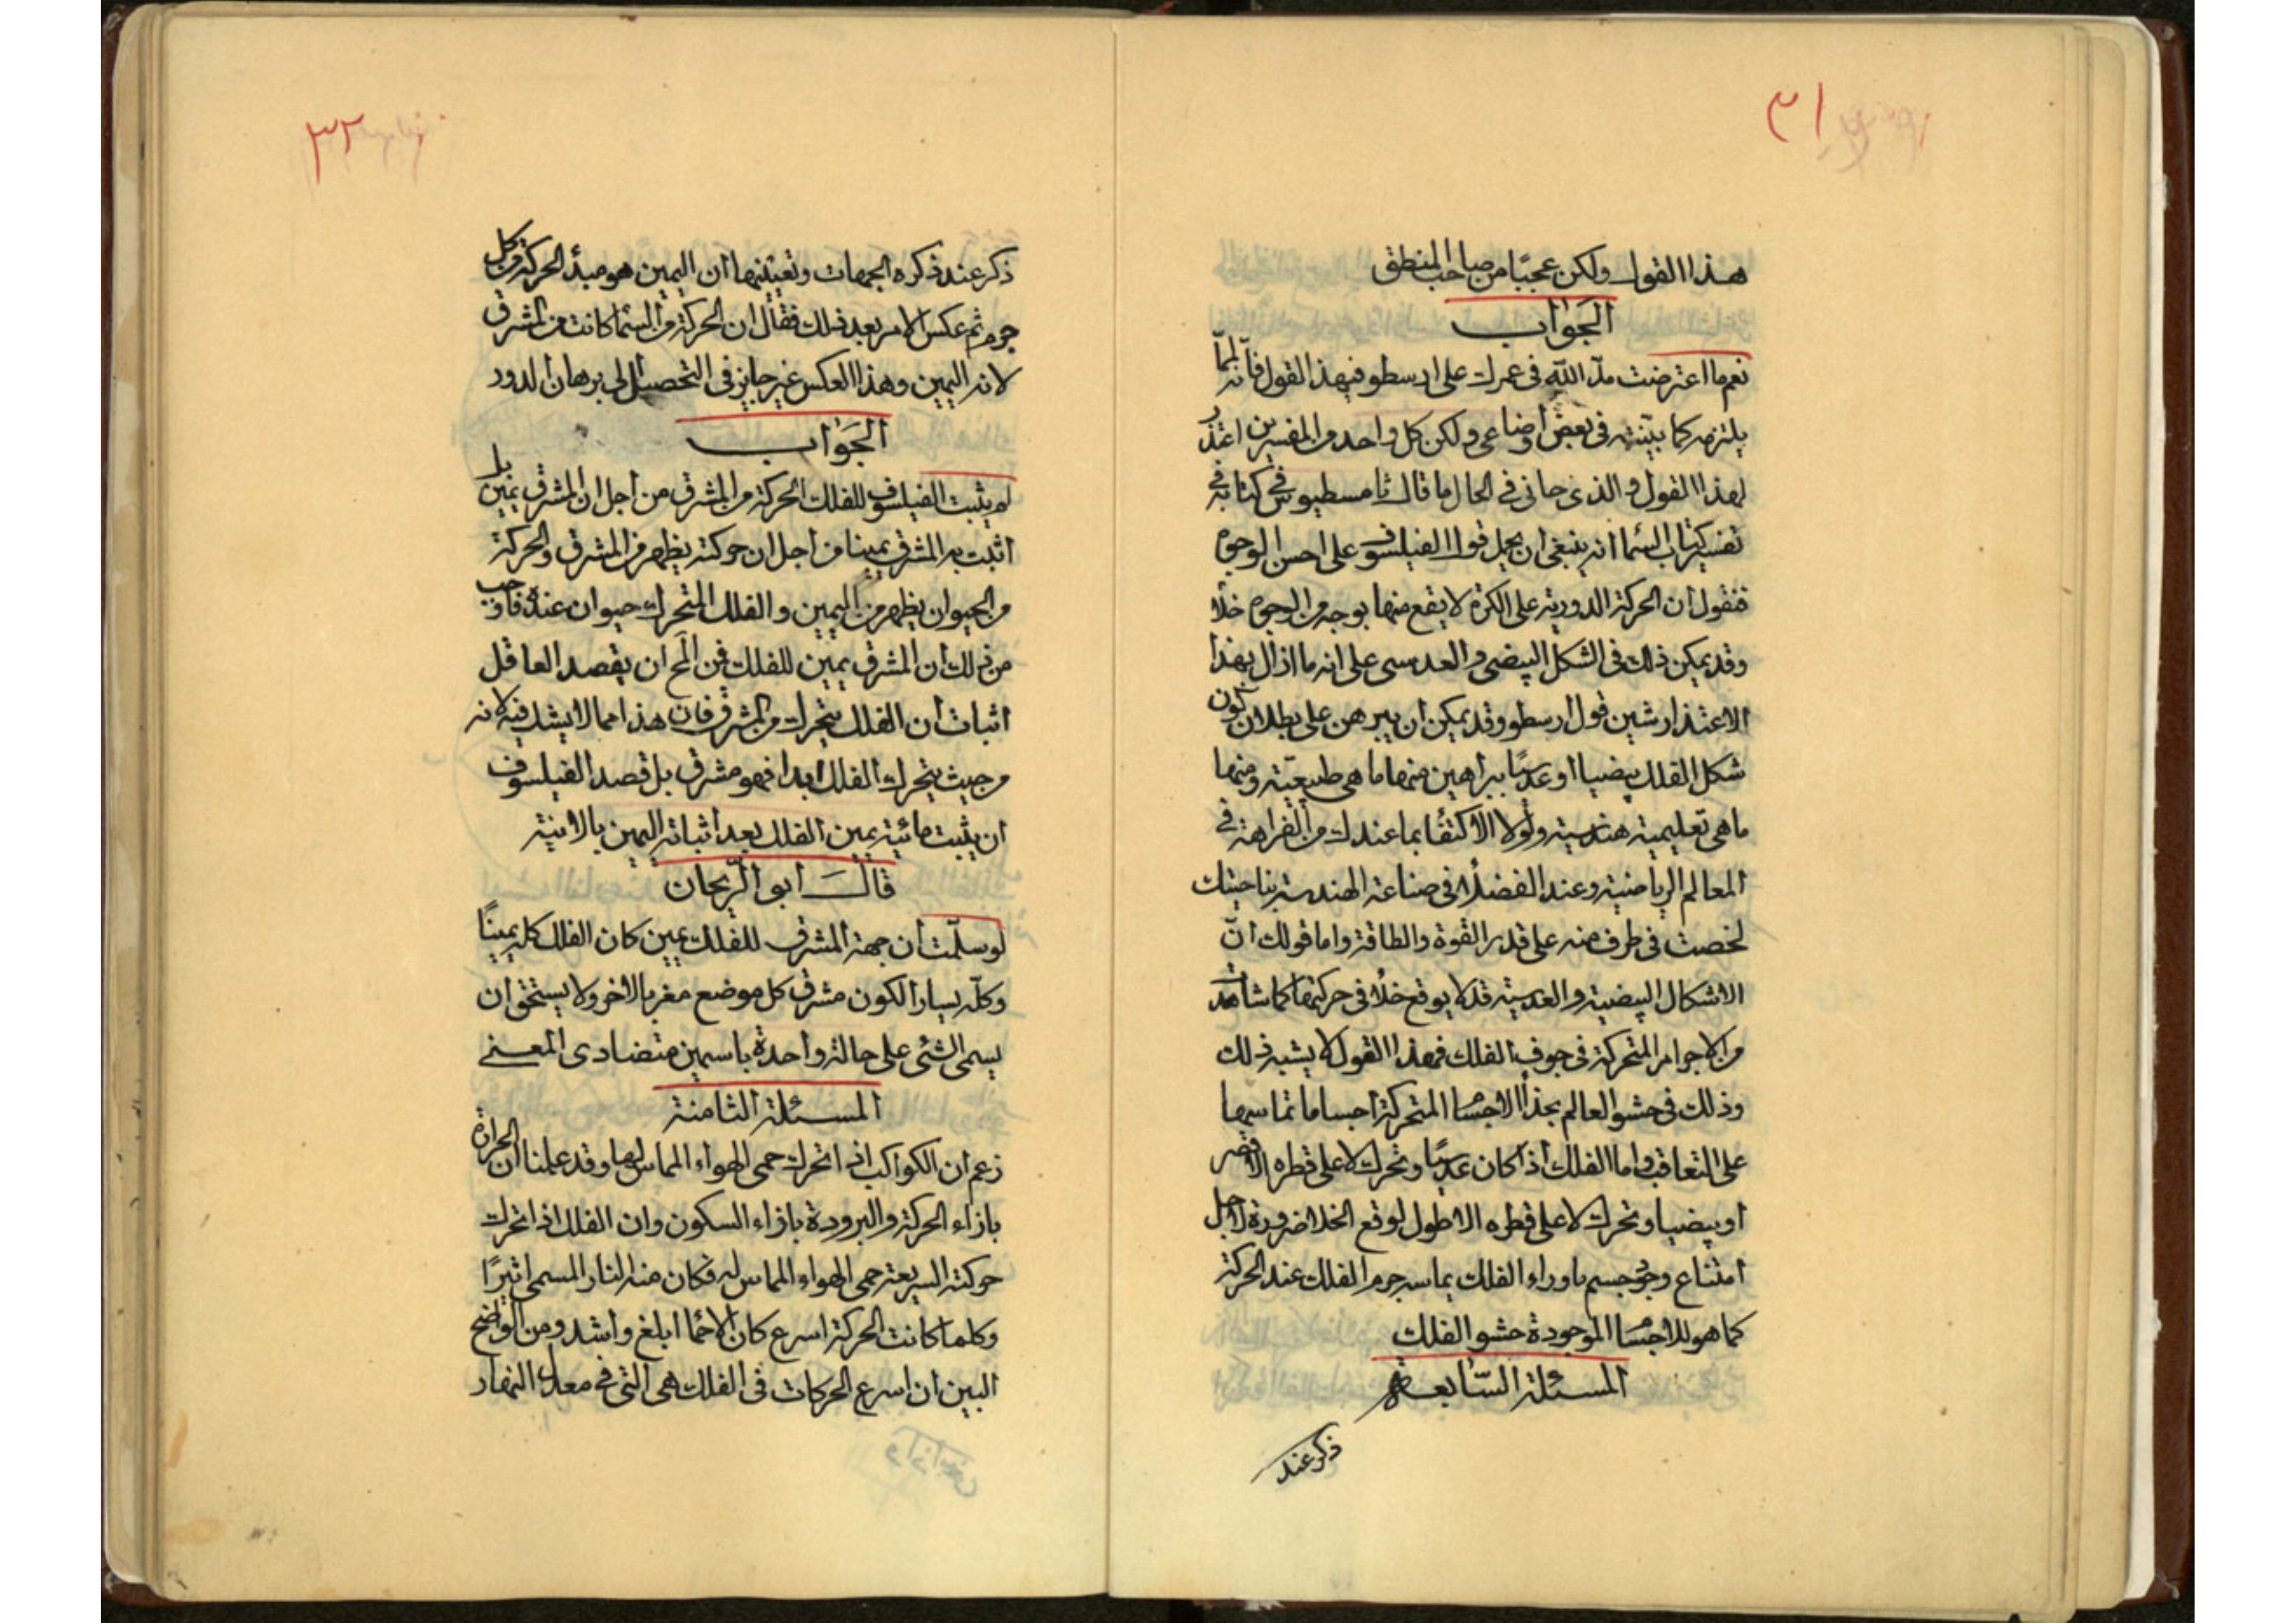 ٣١
هذا القول ولكن عجبًا من صاحب المنطق
الجَوٰاب
نعم ما اعترضت مدّ الله في عمرك على ارسطو في هذا القول فانه لمّا
يلتزمه كما بيّنته في بعض أوضاعي ولكن كل واحد من المفسرين اعتذر
لهذا القول والذي حانى في الحال ما قال ثامسطيوس في كتابه في
تفسير كتاب السما انه ينبغي ان يحمل قول الفيلسوف على احسن الوجوه
فنقول ان الحركة الدورية على الكرة لا يقع منها بوجه من الوجوه خلأ
وقد يمكن ذلك في الشكل البيضي والعدسي على انه ما ازال بهذا
الاعتذار شين قول ارسطو وقد يمكن ان يبرهن على بطلان كون
شكل الفلك بيضيا او عدسيًا ببراهين منها ما هي طبيعيّة ومنها
ما هي تعليمية هندسية ولولا الاكتفٰا بما عندك من الفراهة في
المعالم الرياضية وعند الفضلأ في صناعة الهندسة بناحيتك
لخصت في طرف منه على قدر القوة والطاقة واما قولك انّ
الاشكال البيضية والعدسية قد لا يوقع خلأ في حركتها كما شاهدت
من الاجرام المتحركة في جوف الفلك فهذا القول لا يشبه ذلك
وذلك في حشو العالم بحذأ الاجسٰا المتحركة اجساما تماسها
على التعاقب واما الفلك اذا كان عدسيًا وتحرك لا على قطره الاقصر
او بيضيا وتحرك لا على قطره الاطول لوقع الخلا ضرورة لاجل
امتناع وجود جسم ماوراء الفلك يماسه جرم الفلك عند الحركة
كما هو للاجسٰا الموجودة حشو الفلك
المسئلة السّابعة
ذكر عند
٣٢
ذكر عند ذكره الجهات وتعيّنها ان اليمين هو مبدأ الحركة من كل
جرم ثم عكس الامر بعد ذلك فقال ان الحركة من السّما كانت من المشرق
لانه اليمين وهذا العكس غير جايز في التحصيل الى برهان الدور
الجَوٰاب
لم يثبت الفيلسوف للفلك الحركة من المشرق من اجل ان المشرق يمين بل
اثبت به المشرق يمينا من اجل ان حركته يظهر من المشرق والحركة
من الحيوان يظهر من اليمين والفلك المتحرك حيوان عنده فاوجب
من ذلك ان المشرق يمين للفلك فمن المح ان يقصد العاقل
اثبات ان الفلك يتحرك من المشرق فان هذا مما لا يشك فيه لانه
من حيث يتحرك الفلك ابدا فهو مشرق بل قصد الفيلسوف
ان يثبت مائية يمين الفلك بعد اثباته اليمين بالانية
قالَ ابو الرّيحان
لو سلّمت ان جهة المشرق للفلك يمين كان الفلك كله يمينًا
وكلّه يسارا لكون مشرق كل موضع مغربا لاخر ولا يستحق ان
يسمى الشئ على حالة واحدة باسمين متضادى المعنى
المسئلة الثامنة
زعم ان الكواكب اذا تحرك حمى الهواء المماس لها وقد علمنا ان الحرارة
بازاء الحركة والبرودة بازاء السكون وان الفلك اذا تحرك
حركته السريعة حمى الهواء المماس له فكان منه النار المسمى اثيرًا
وكلما كانت الحركة اسرع كان الاحما ابلغ واشد ومن الواضح
البين ان اسرع الحركات في الفلك هي التي في معدل النهار